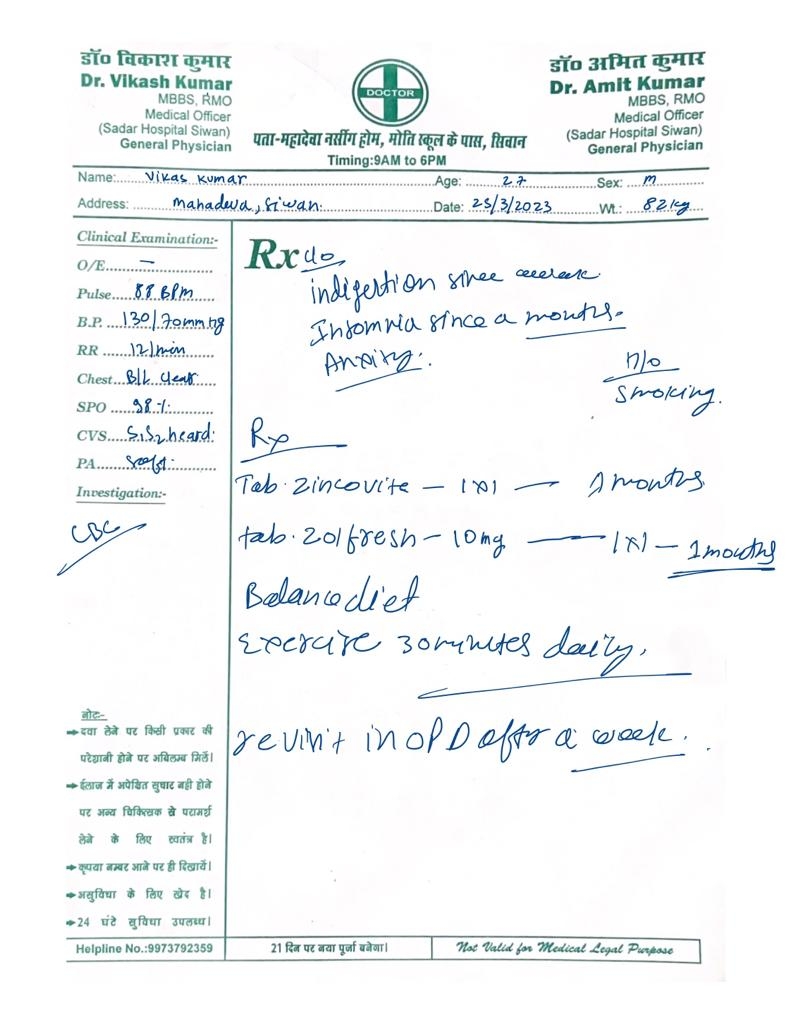 डॉ० विकाश कुमार
Dr. Vikash Kumar
MBBS, RMO
Medical Officer
(Sadar Hospital Siwan)
General Physician
DOCTOR
पता-महादेवा नर्सींग होम, मोति स्कूल के पास, सिवान
Timing:9AM to 6PM
डॉ० अमित कुमार
Dr. Amit Kumar
MBBS, RMO
Medical Officer
(Sadar Hospital Siwan)
General Physician
Name: Vikas Kumar Age: 27 Sex: M
Address: Mahadeva, Siwan. Date: 25/3/2023 Wt.: 82kg
Clinical Examination:-
O/E. —
Pulse 88 BPM
B.P. 130/70mmHg
RR 12/min
Chest B/L clear
SPO 98%
CVS S1S2 heard.
PA soft.
Investigation:-
CBC
Rx c/o
indigestion since a week
Insomnia since a months.
Anxity.
H/o
Smoking.
Rx
Tab. Zincovite — 1x1 — 1 months
tab. Zolfresh — 10mg — 1x1 — 1 months
Balance diet
Exercire 30 minutes daily.
revisit in OPD after a week.
नोट:-
दवा लेने पर किसी प्रकार की
परेशानी होने पर अबिलम्ब मिलें।
ईलाज में अपेक्षित सुधार नही होने
पर अन्य चिकित्सक से परामर्श
लेने के लिए स्वतंत्र है।
कृपया नम्बर आने पर ही दिखायें।
असुविधा के लिए खेद है।
24 घंटे सुविधा उपलब्ध।
Helpline No.:9973792359
21 दिन पर नया पूर्जा बनेगा।
Not Valid for Medical Legal Purpose